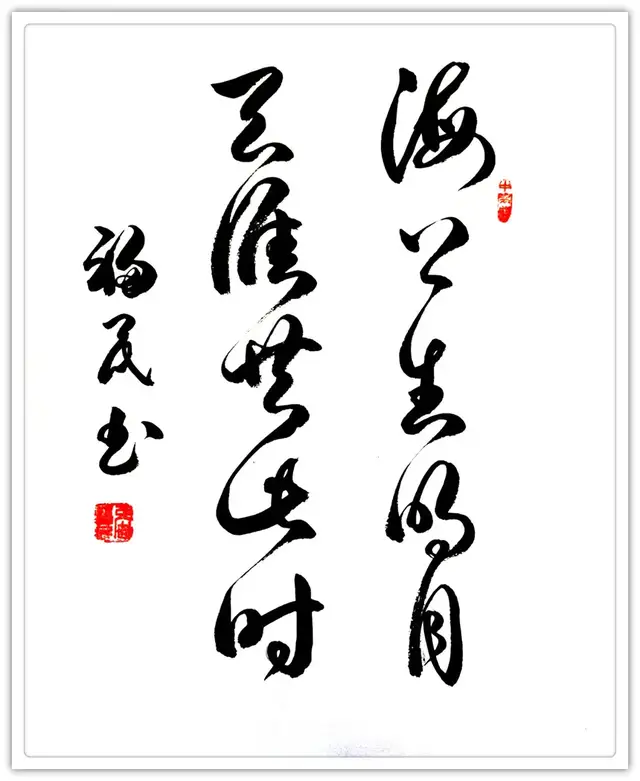 海上生明月
天涯共此时
福民书